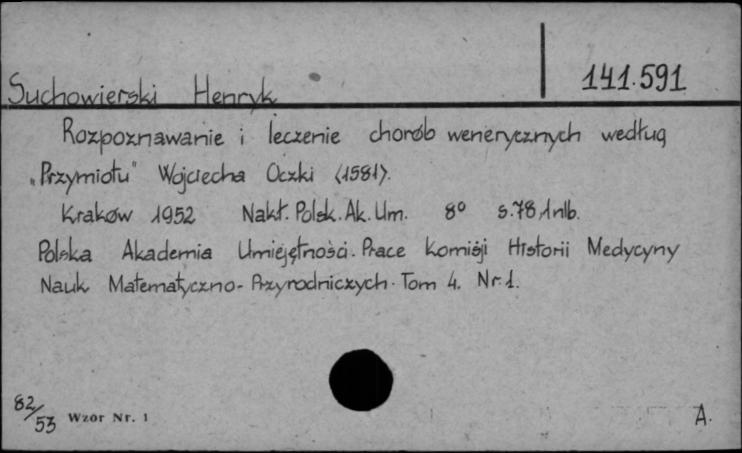 141.591
Suchowierski Henryk
Rozpoznawanie i leczenie chorób wenerycznych według
„Przymiotu" Wojciecha Oczki <1581>.
Kraków 1952 Nakł. Polsk. Ak. Um. 8° s. 78, 1 nlb.
Polska Akademia Umiejętności. Prace Komisji Historii Medycyny
Nauk Matematyczno-Przyrodniczych. Tom 4. Nr 1.
82/53 Wzór Nr. 1 A.